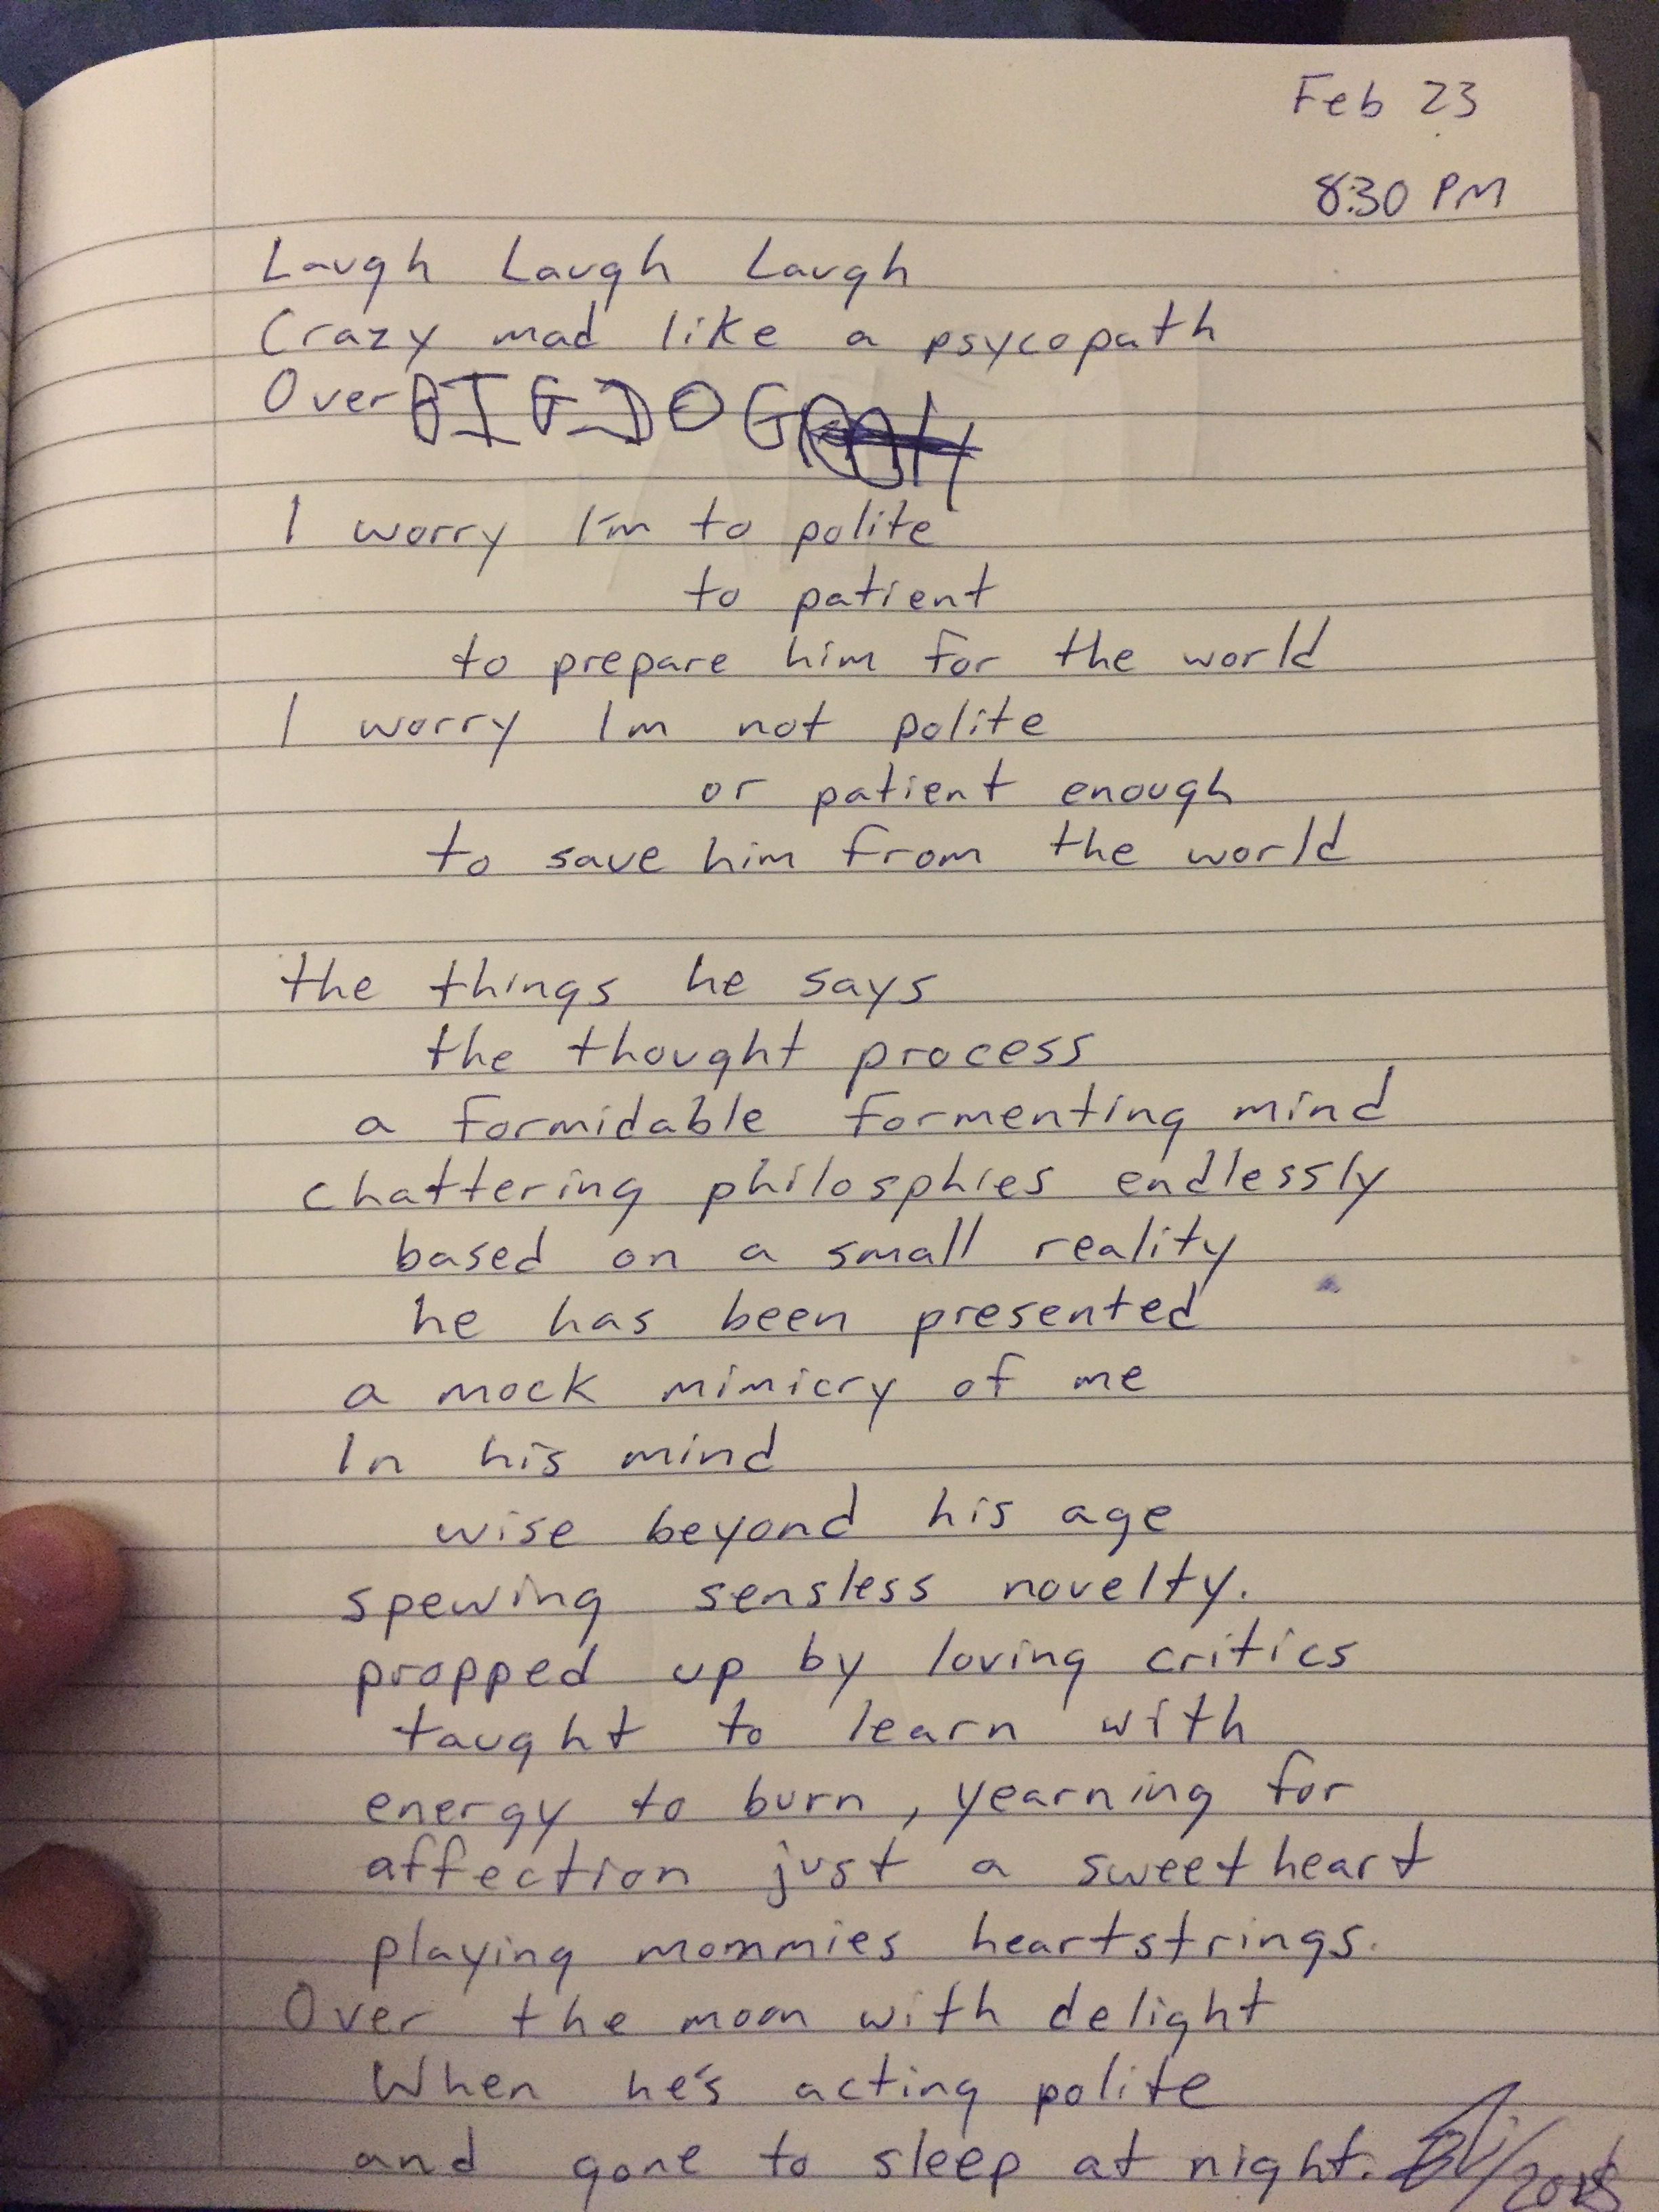 Feb 23
8:30 PM
Laugh Laugh Laugh
Crazy mad like a psycopath
Over BIGDOG
I worry I'm to polite
to patient
to prepare him for the world
I worry Im not polite
or patient enough
to save him from the world
the things he says
the thought process
a formidable formenting mind
chattering philosphies endlessly
based on a small reality
he has been presented
a mock mimicry of me
In his mind
wise beyond his age
spewing sensless novelty.
propped up by loving critics
taught to learn with
energy to burn, yearning for
affection just a sweetheart
playing mommies heartstrings.
Over the moon with delight
When he's acting polite
and gone to sleep at night.